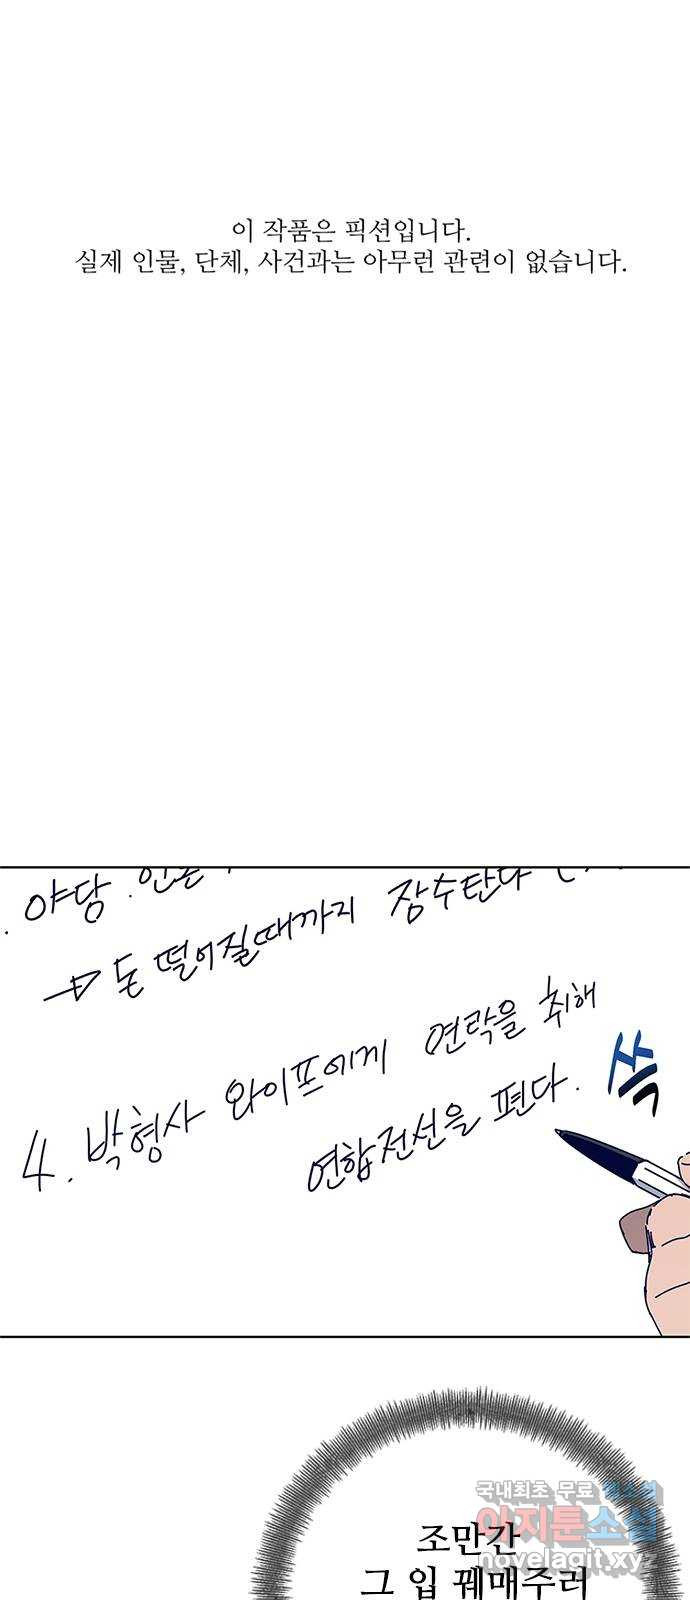 이 작품은 픽션입니다.
실제 인물, 단체, 사건과는 아무런 관련이 없습니다.
. 야당.
→ 돈 떨어질때까지 장수탄다
4. 박형사 와이프에게 연락을 취해
연합전선을 편다.
쓱
국내최초 무료 웹소설
아지툰소설
novelagit.xyz
조만간
그 입 꿰매주러